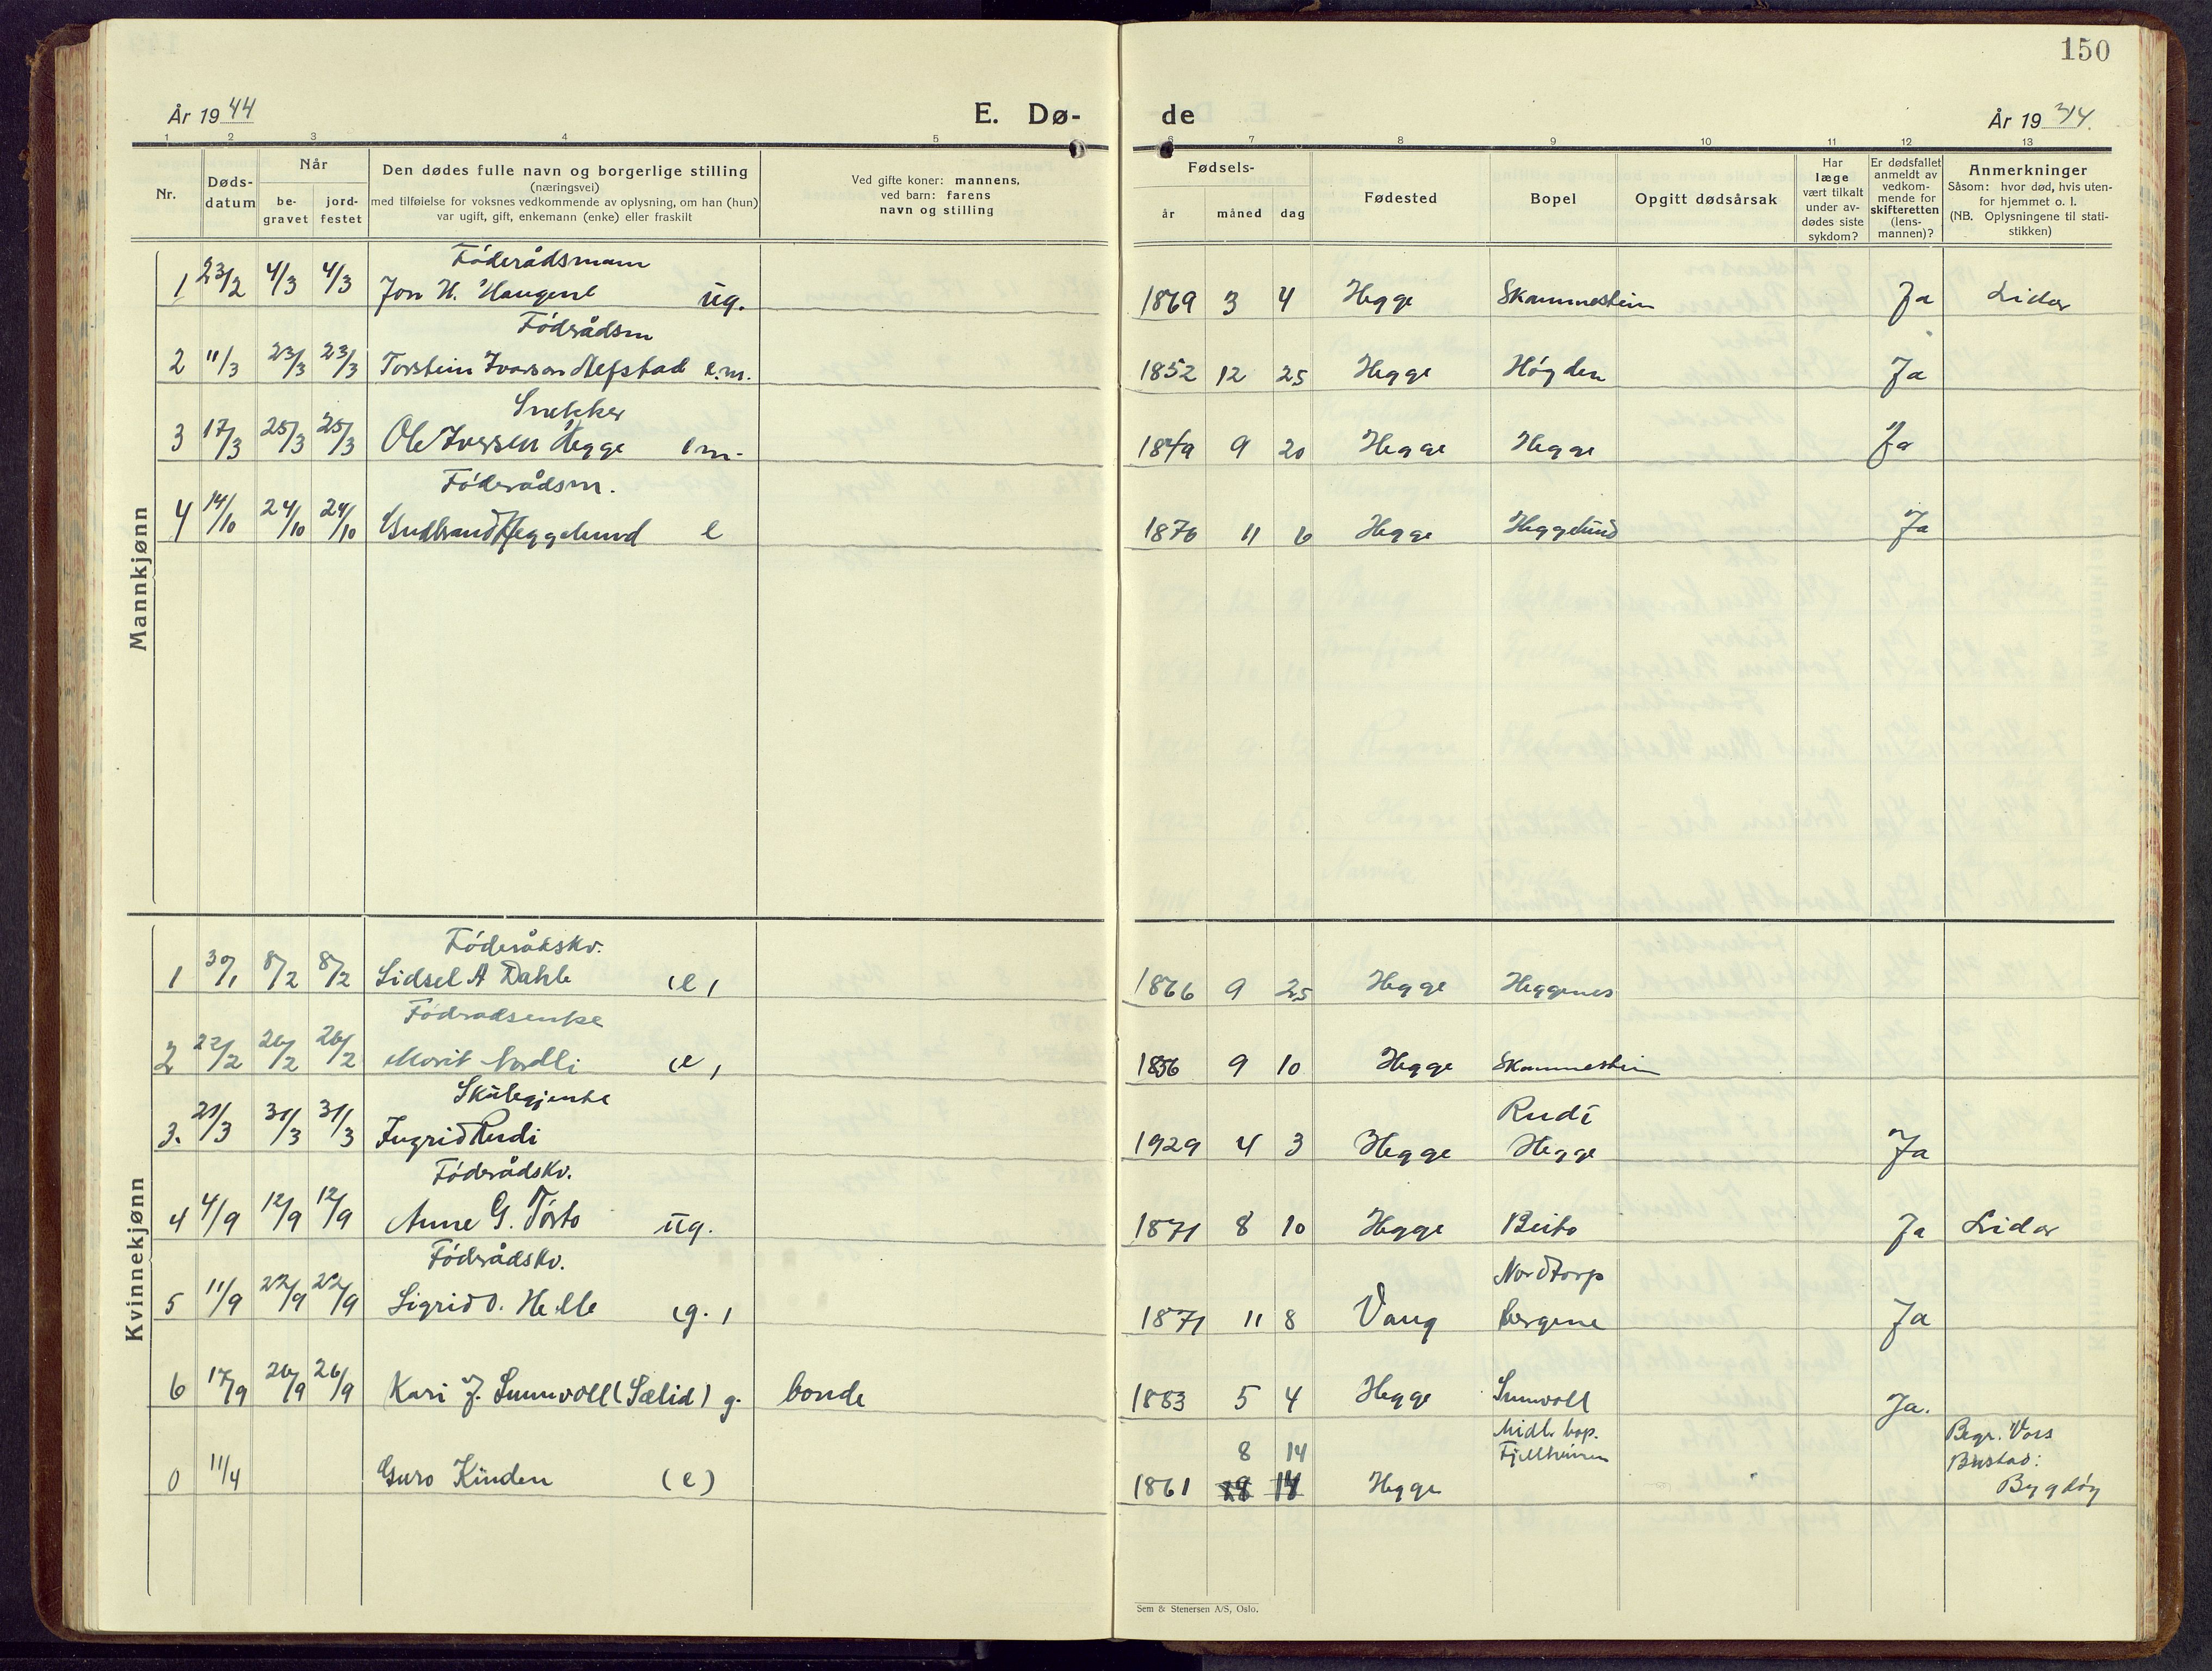 150
År 1944
E. Dø-
de
År 1944.
1 2 3 4 5 6 7 8 9 10 11 12 13
Nr.
Døds-
datum
Når
be-
gravet
jord-
festet
Den dødes fulle navn og borgerlige stilling
(næringsvei)
med tilføielse for voksnes vedkommende av oplysning, om han (hun)
var ugift, gift, enkemann (enke) eller fraskilt
Ved gifte koner: mannens,
ved barn: farens
navn og stilling
Fødsels-
år måned dag
Fødested
Bopel
Opgitt dødsårsak
Har
læge
vært tilkalt
under av-
dødes siste
sykdom?
Er dødsfallet
anmeldt av
vedkom-
mende for
skifteretten
(lens-
mannen)?
Anmerkninger
Såsom: hvor død, hvis uten-
for hjemmet o. l.
(NB. Oplysningene til stati-
stikken)
Mannkjønn
Føderådsmann
1 23/2 4/3 4/3 Jon H. Haugene ug. 1869 3 4 Hegge Skammestein Ja Lidar
Føderådsm
2 11/3 23/3 23/3 Torstein Ivarson Hefstad e.m. 1852 12 25 Hegge Høgden Ja
Snekker
3 17/3 25/3 25/3 Ole Iversen Hegge em. 1849 9 20 Hegge Hegge Ja
Føderådsm.
4 14/10 24/10 24/10 Gudbrand Heggelund e 1876 11 6 Hegge Heggelund Ja
Kvinnekjønn
Føderåkskv.
1 30/1 8/2 8/2 Sidsel A Dahle (e) 1866 9 25 Hegge Heggenes
Fødradsenke
2 22/2 26/2 26/2 Marit Nordli (e) 1856 9 10 Hegge Skammestein
Skulegjente
3. 21/3 31/3 31/3 Ingrid Rudi 1929 4 3 Hegge Rudi
Hegge Ja
Føderådskv.
4 4/9 12/9 12/9 Anne G. Tørsto ug. 1871 8 10 Hegge Beito Ja Lidar
Føderådskv.
5 11/9 22/9 22/9 Sigrid O. Helle (g.) 1871 11 8 Vang Nordtorp
Bergene Ja
6 17/9 26/9 26/9 Kari J. Sunnvoll (Sælid) g. bonde 1883 5 4 Hegge Sunvoll Ja.
0 11/4 Guro Kinden (e) 1861 8 14 Hegge Midl. bop.
Fjellheimen
Begr. Vors
Bustad:
Bygdøy
Sem & Stenersen A/S, Oslo.